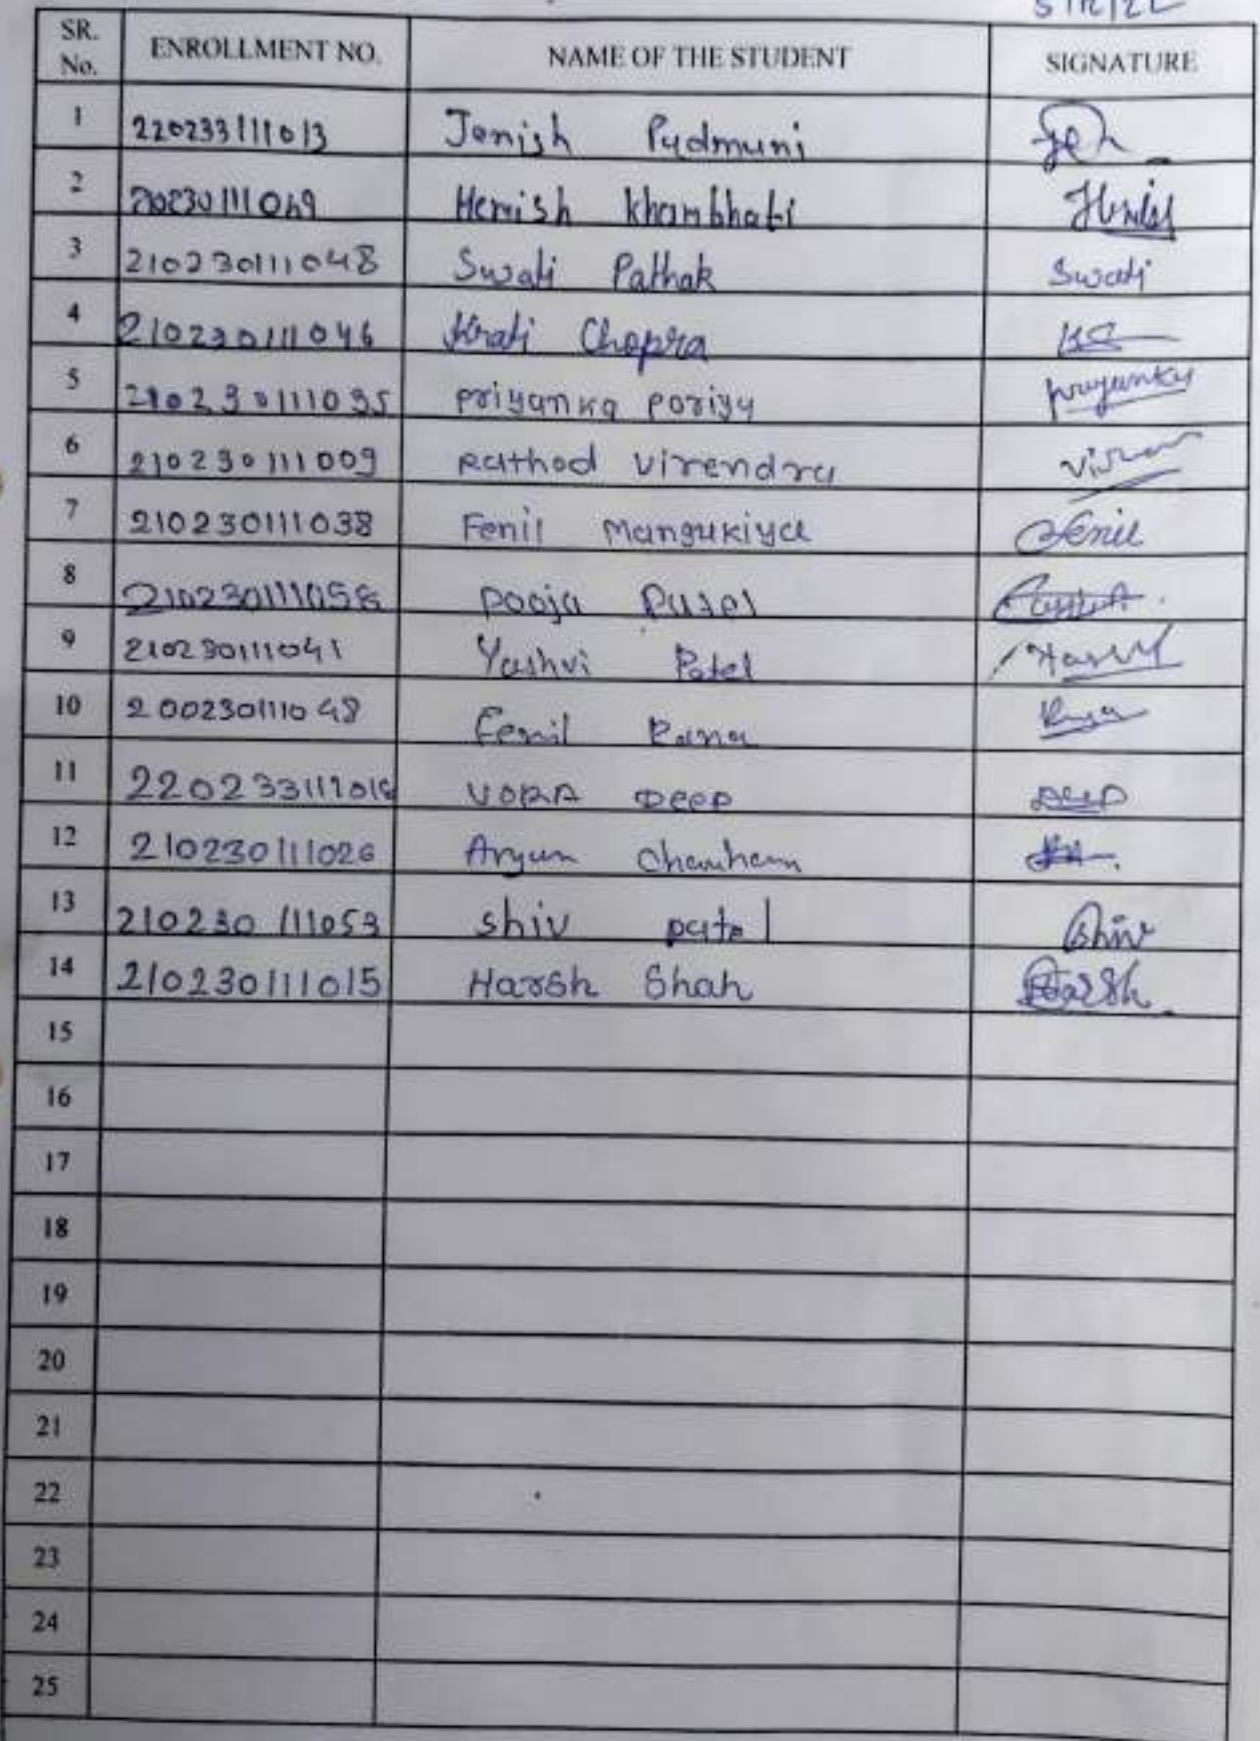 5/12/22
SR. No. ENROLLMENT NO. NAME OF THE STUDENT SIGNATURE
1 220233111013 Jenish Pudmuni
2 Henish Khambhati
3 210230111048 Swati Pathak Swati
4 210230111046 Krati Chopra KC
5 210230111035 priyanka poriya priyanka
6 210230111009 Rathod virendra
7 210230111038 Fenil Mangukiya Fenil
8 pooja Patel
9 210230111041 Yashvi Patel Yashvi
10 200230111048 Fenil Rana
11 VORA DEEP DEEP
12 210230111026 Aryun Chauhan
13 210230111053 shiv patel Shiv
14 210230111015 Harsh Shah Harsh
15
16
17
18
19
20
21
22
23
24
25